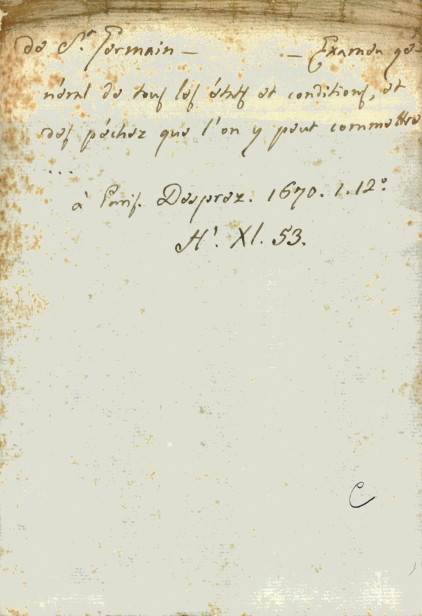 de St. Germain — — Examen gé-
néral de tous les états et conditions, et
des péchez que l'on y peut commettre
...
à Paris. Desprez. 1670. 1. 12°
H'. XI. 53.
C